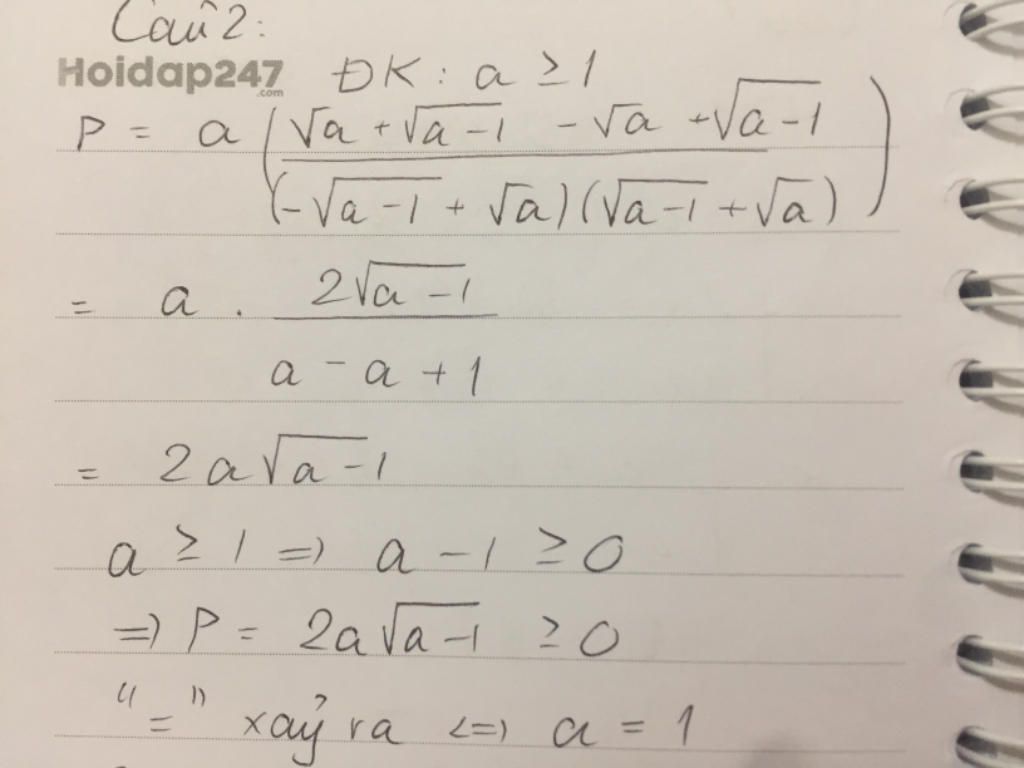 Câu 2:
Hoidap247
.com
ĐK: a ≥ 1
P = a ( (√a + √(a-1) - √a + √(a-1)) / ((-√(a-1) + √a)(√(a-1) + √a)) )
= a . (2√(a-1)) / (a - a + 1)
= 2a√(a-1)
a ≥ 1 => a - 1 ≥ 0
=> P = 2a√(a-1) ≥ 0
"=" xảy ra <=> a = 1